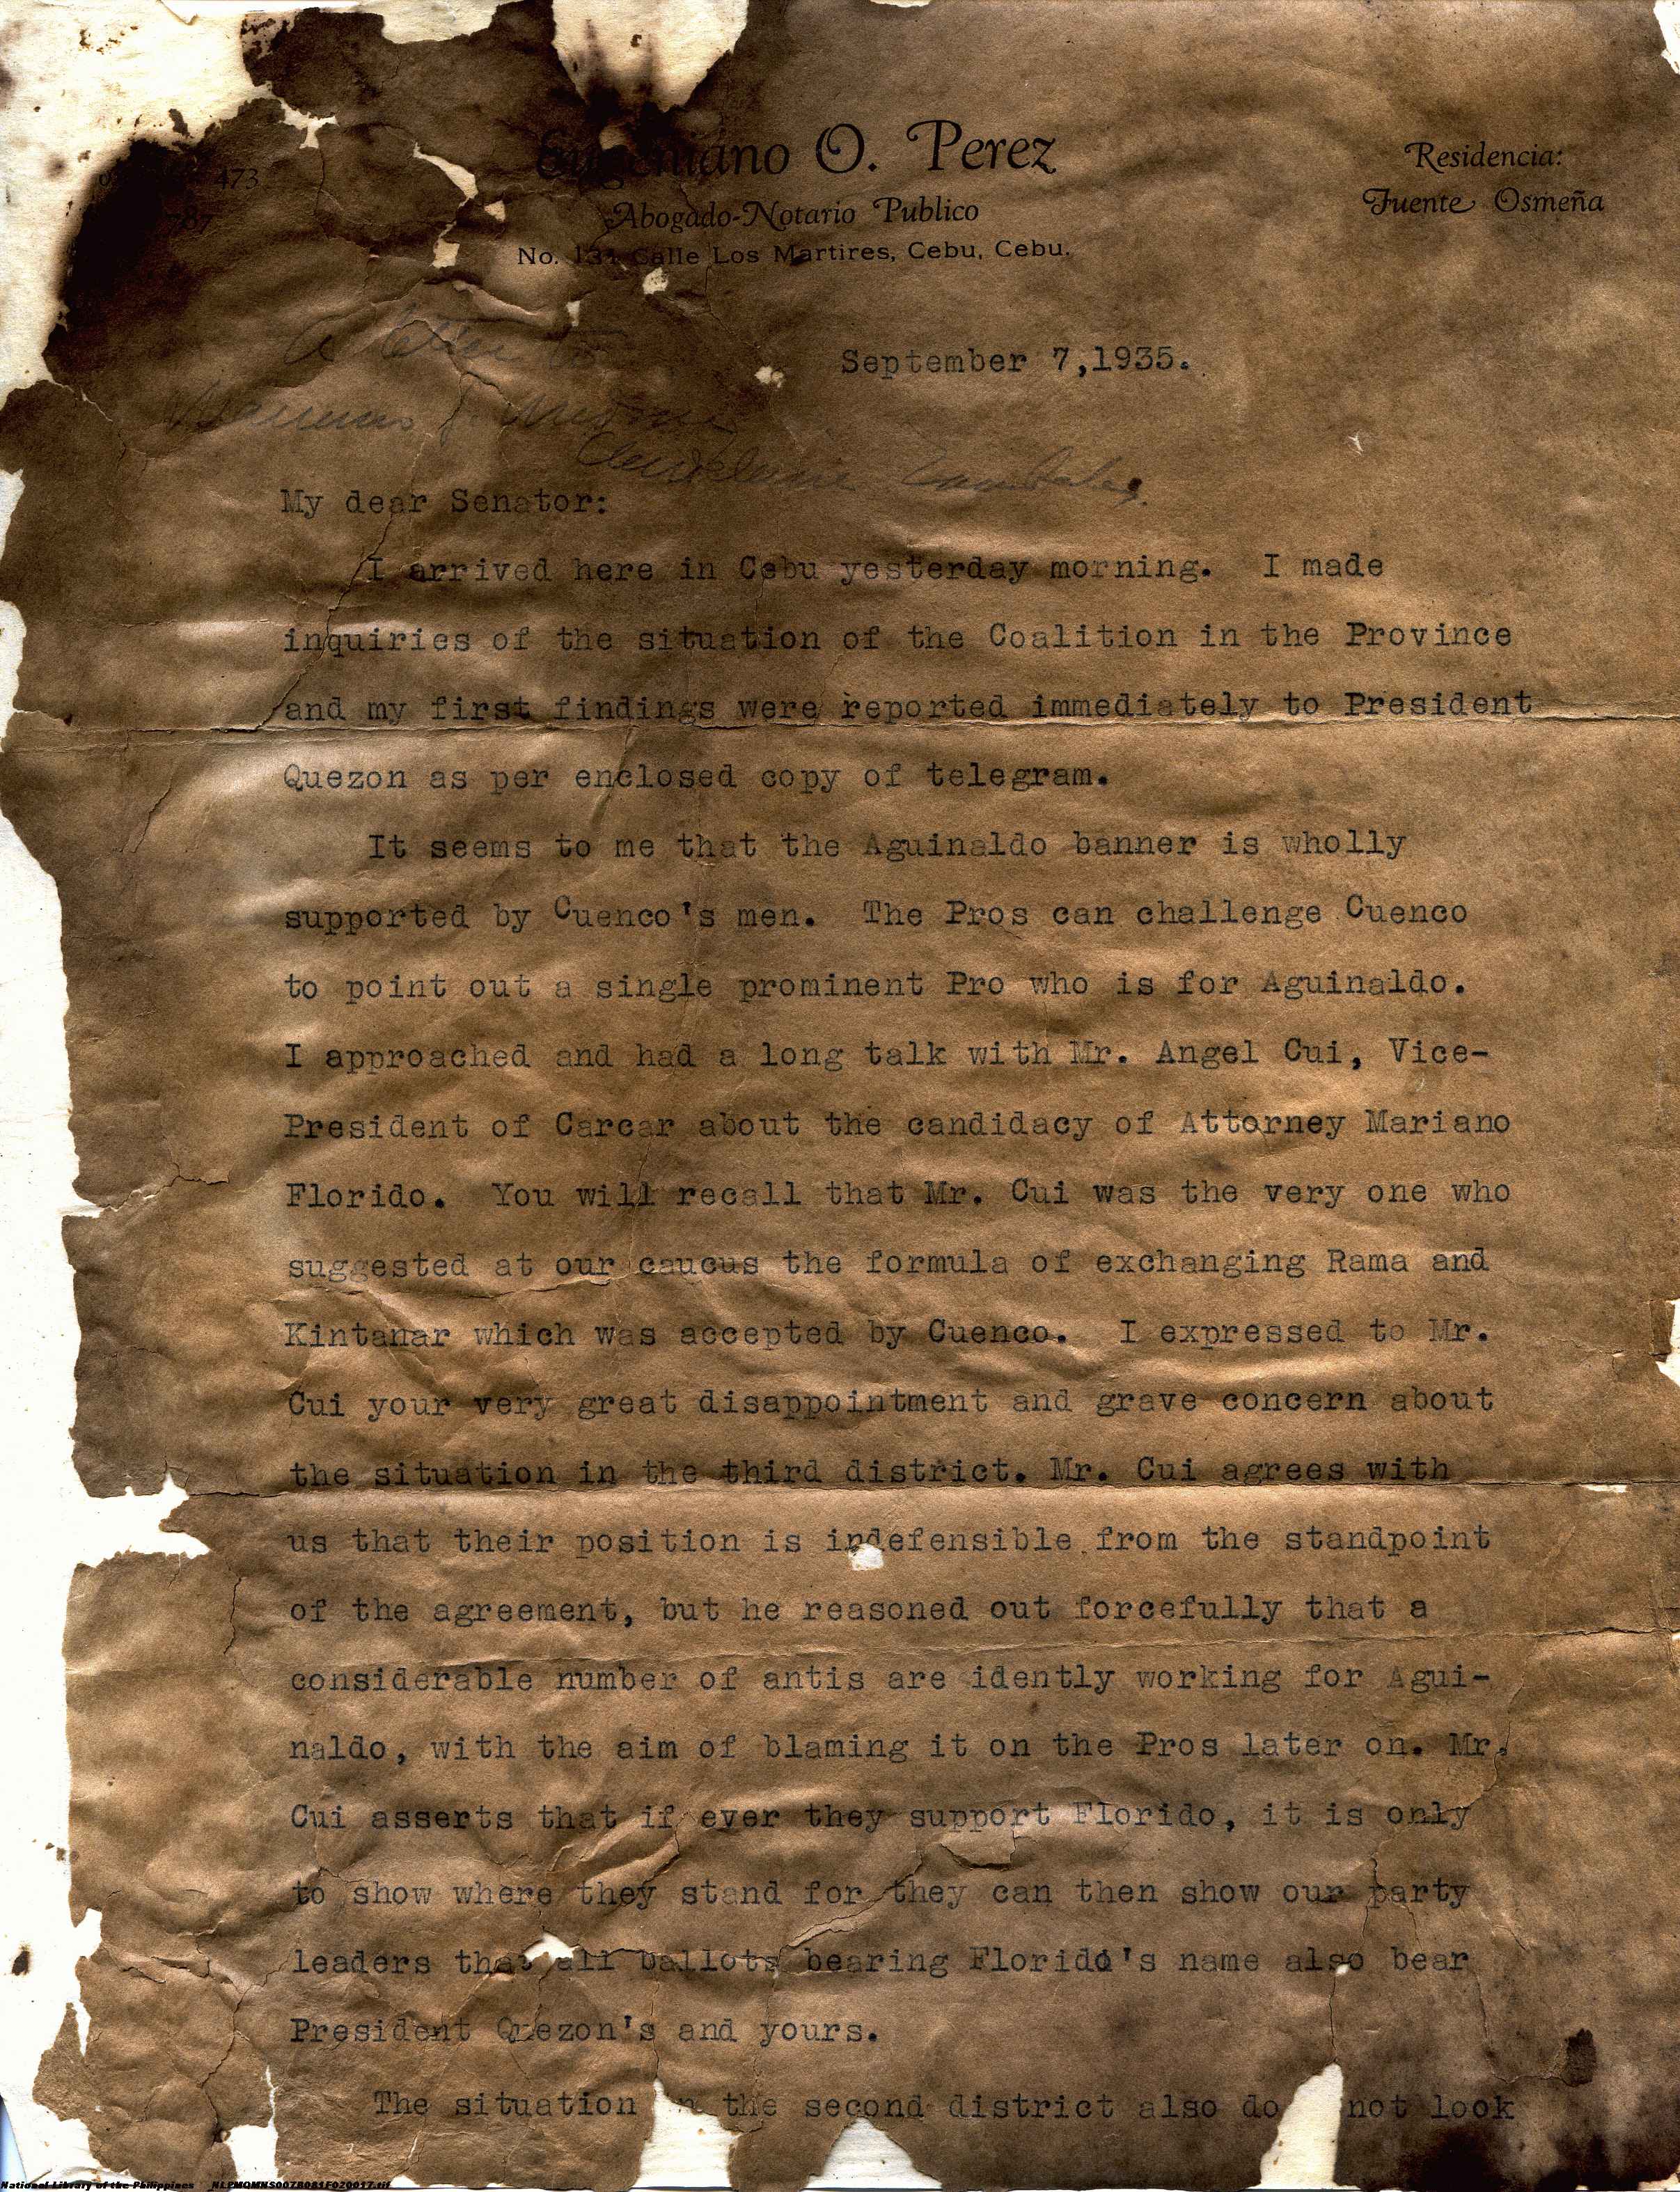 473
787
Eugeniano O. Perez
Abogado-Notario Publico
No. 131 Calle Los Martires, Cebu, Cebu.
Residencia:
Fuente Osmeña
A letter to
September 7,1935.
My dear Senator:
I arrived here in Cebu yesterday morning. I made
inquiries of the situation of the Coalition in the Province
and my first findings were reported immediately to President
Quezon as per enclosed copy of telegram.
It seems to me that the Aguinaldo banner is wholly
supported by Cuenco's men. The Pros can challenge Cuenco
to point out a single prominent Pro who is for Aguinaldo.
I approached and had a long talk with Mr. Angel Cui, Vice-
President of Carcar about the candidacy of Attorney Mariano
Florido. You will recall that Mr. Cui was the very one who
suggested at our caucus the formula of exchanging Rama and
Kintanar which was accepted by Cuenco. I expressed to Mr.
Cui your very great disappointment and grave concern about
the situation in the third district. Mr. Cui agrees with
us that their position is indefensible from the standpoint
of the agreement, but he reasoned out forcefully that a
considerable number of antis are idently working for Agui-
naldo, with the aim of blaming it on the Pros later on. Mr.
Cui asserts that if ever they support Florido, it is only
to show where they stand for they can then show our party
leaders that all ballots bearing Florido's name also bear
President Quezon's and yours.
The situation n the second district also do not look
National Library of the Philippines NLPMQMNS007B081F020017.tif